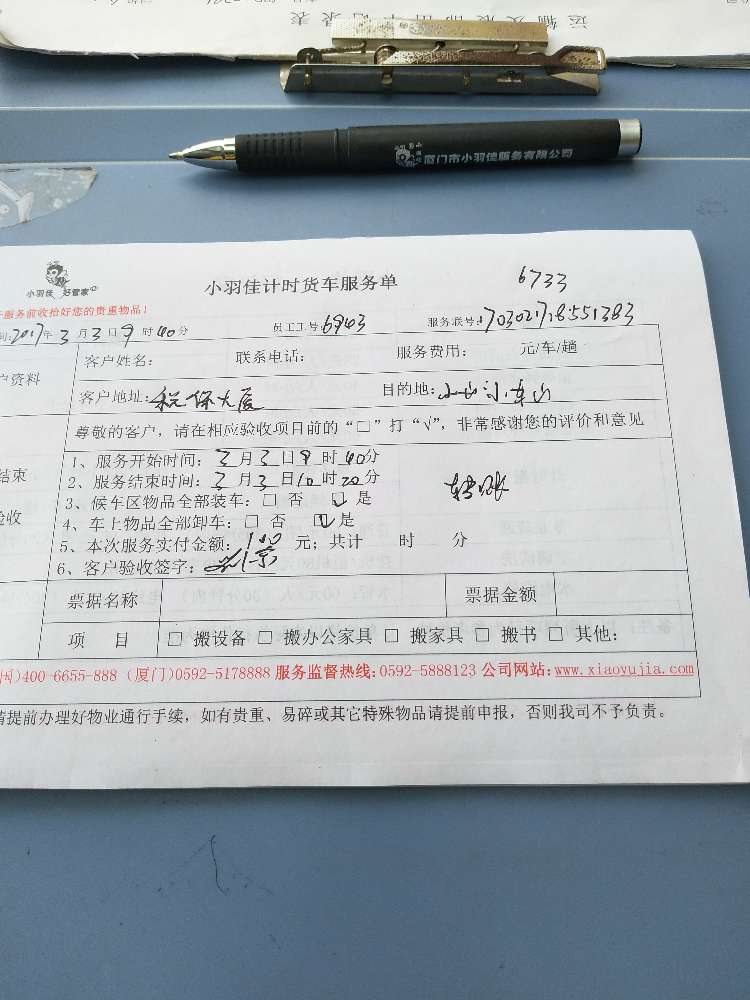 运输及展品出车记录表
厦门市小羽佳服务有限公司
小羽佳 好管家
小羽佳计时货车服务单
6733
服务前收拾好您的贵重物品!
间:2017年3月3日9时40分 员工工号:6943 服务联号:17030217185551383
客户姓名: 联系电话: 服务费用: 元/车/趟
户资料
客户地址:税保大厦 目的地:
尊敬的客户,请在相应验收项目前的“□”打“√”,非常感谢您的评价和意见
1、服务开始时间:3月3日9时40分
2、服务结束时间:3月3日10时20分
转账
结束
3、候车区物品全部装车:□ 否 ☑ 是
验收
4、车上物品全部卸车:□ 否 ☑ 是
5、本次服务实付金额:100元;共计 时 分
6、客户验收签字:
票据名称 票据金额
项 目 □ 搬设备 □ 搬办公家具 □ 搬家具 □ 搬书 □ 其他:
国)400-6655-888 (厦门)0592-5178888 服务监督热线:0592-5888123 公司网站:www.xiaoyujia.com
请提前办理好物业通行手续,如有贵重、易碎或其它特殊物品请提前申报,否则我司不予负责。